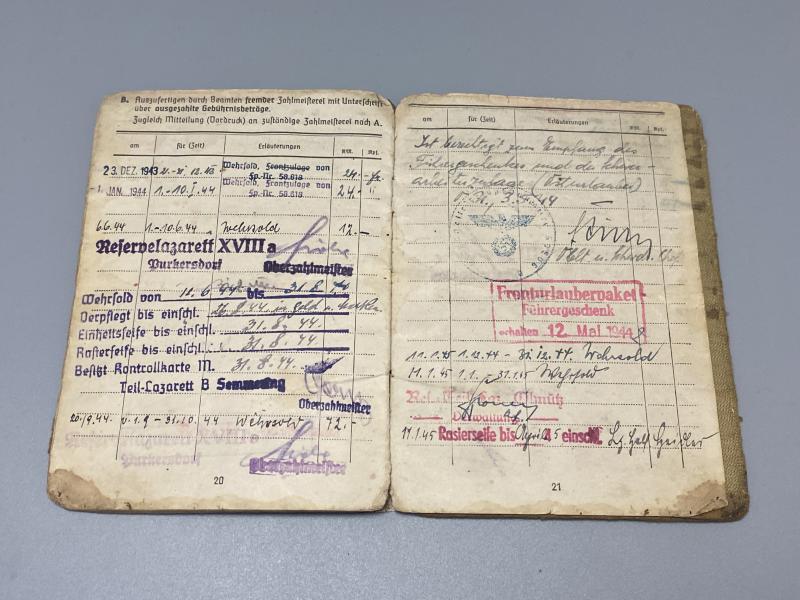 B. Auszufertigen durch Beamten fremder Zahlmeisterei mit Unterschrift
über ausgezahlte Gebührnisbeträge.
Zugleich Mitteilung (Vordruck) an zuständige Zahlmeisterei nach A.
am für (Zeit) Erläuterungen RM. Rpf.
23. DEZ. 1943 Wehrsold, Frontzulage von 24.-
Fp.-Nr. 58.618
1. JAN. 1944 1.-10.I.44 Wehrsold, Frontzulage von 24.-
Fp.-Nr. 58.618
6.6.44 1.-10.6.44 Wehrsold 12.-
Reservelazarett XVIII a
Purkersdorf Oberzahlmeister
Wehrsold von 11.6.44 bis 31.8.44
Verpflegt bis einschl. 26.8.44 in Geld u.
Einheitsseife bis einschl. 31.8.44.
Rasierseife bis einschl. 31.8.44
Besitzt Kontrollkarte M. 31.8.44.
Teil-Lazarett B Semmering
Oberzahlmeister
20.9.44 v. 1.9.-31.10.44 Wehrsold 72.-
Reservelazarett XVIII a
Purkersdorf Oberzahlmeister
20
am für (Zeit) Erläuterungen RM. Rpf.
Ist berechtigt zum Empfang des
Führergeschenkes und der Schwer-
arbeiterzulage (Osturlauber)
Fronturlauberpaket
Führergeschenk
erhalten 12. Mai 1944
11.1.45 1.12.44 - 31.12.44. Wehrsold
11.1.45 1.1. - 31.1.45 Wehrsold
Olmütz
Verwaltung
17.1.45 Rasierseife bis April 45 einschl.
21